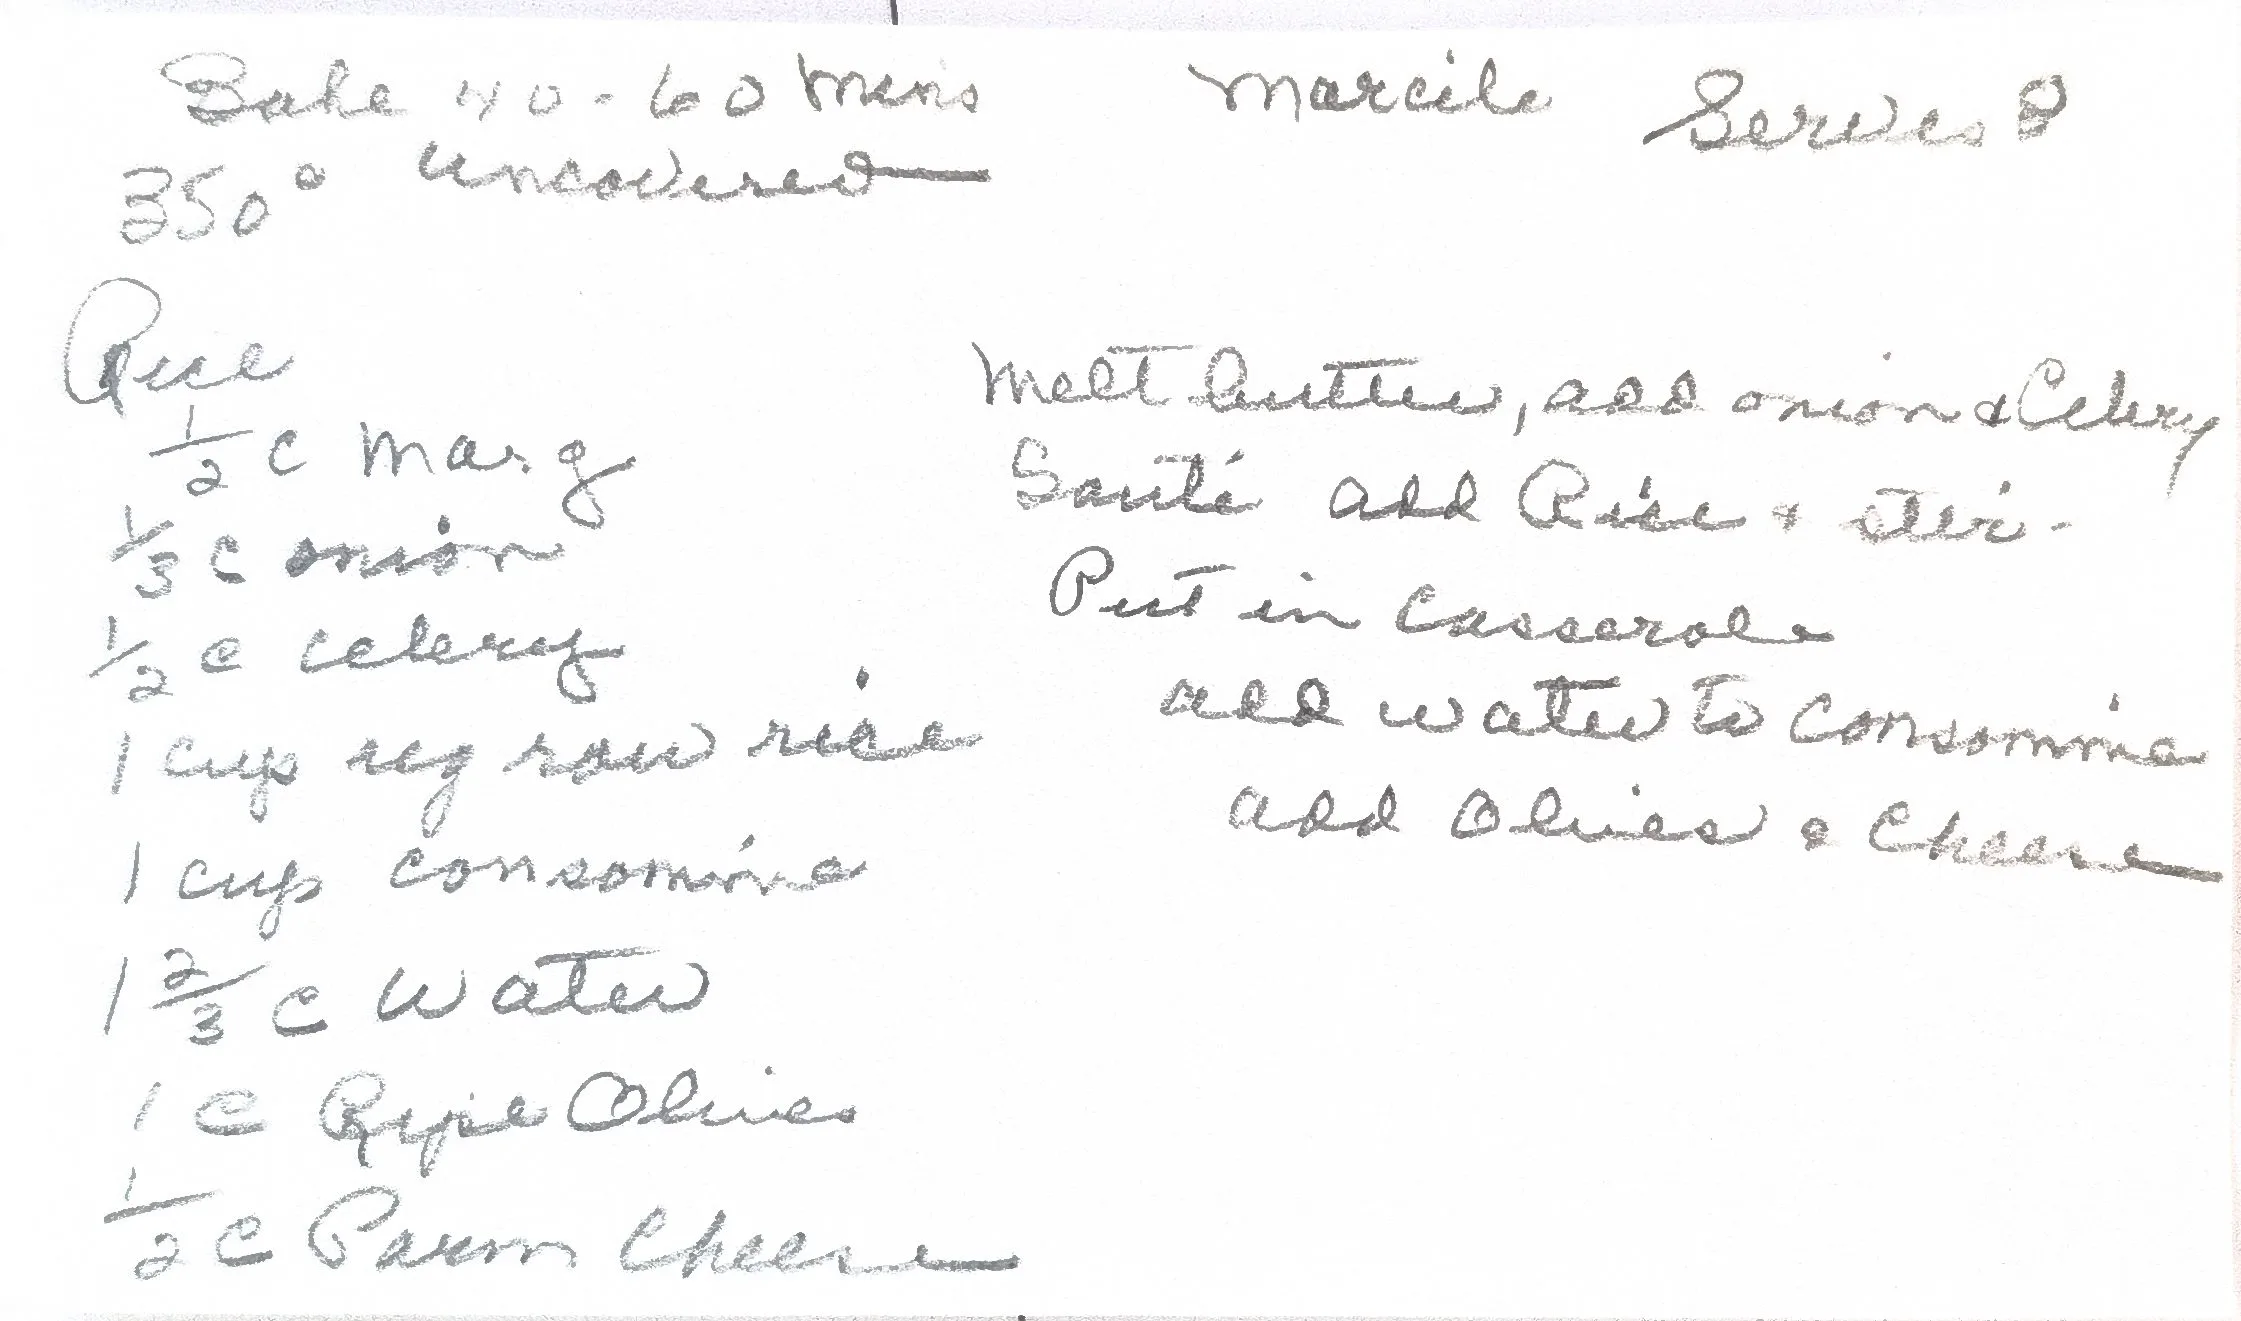 Bake 40-60 mins
350° uncovered
Marcile
Serves 8
Rice
1/2 c Marg
1/3 c onion
1/2 c celery
1 cup reg raw rice
1 cup consomme
1 2/3 c water
1 c Ripe Olives
1/2 c Parm Cheese
Melt butter, add onion & Celery
Sauté add Rice & stir-
Put in Casserole
add water to Consomme
add Olives & Cheese